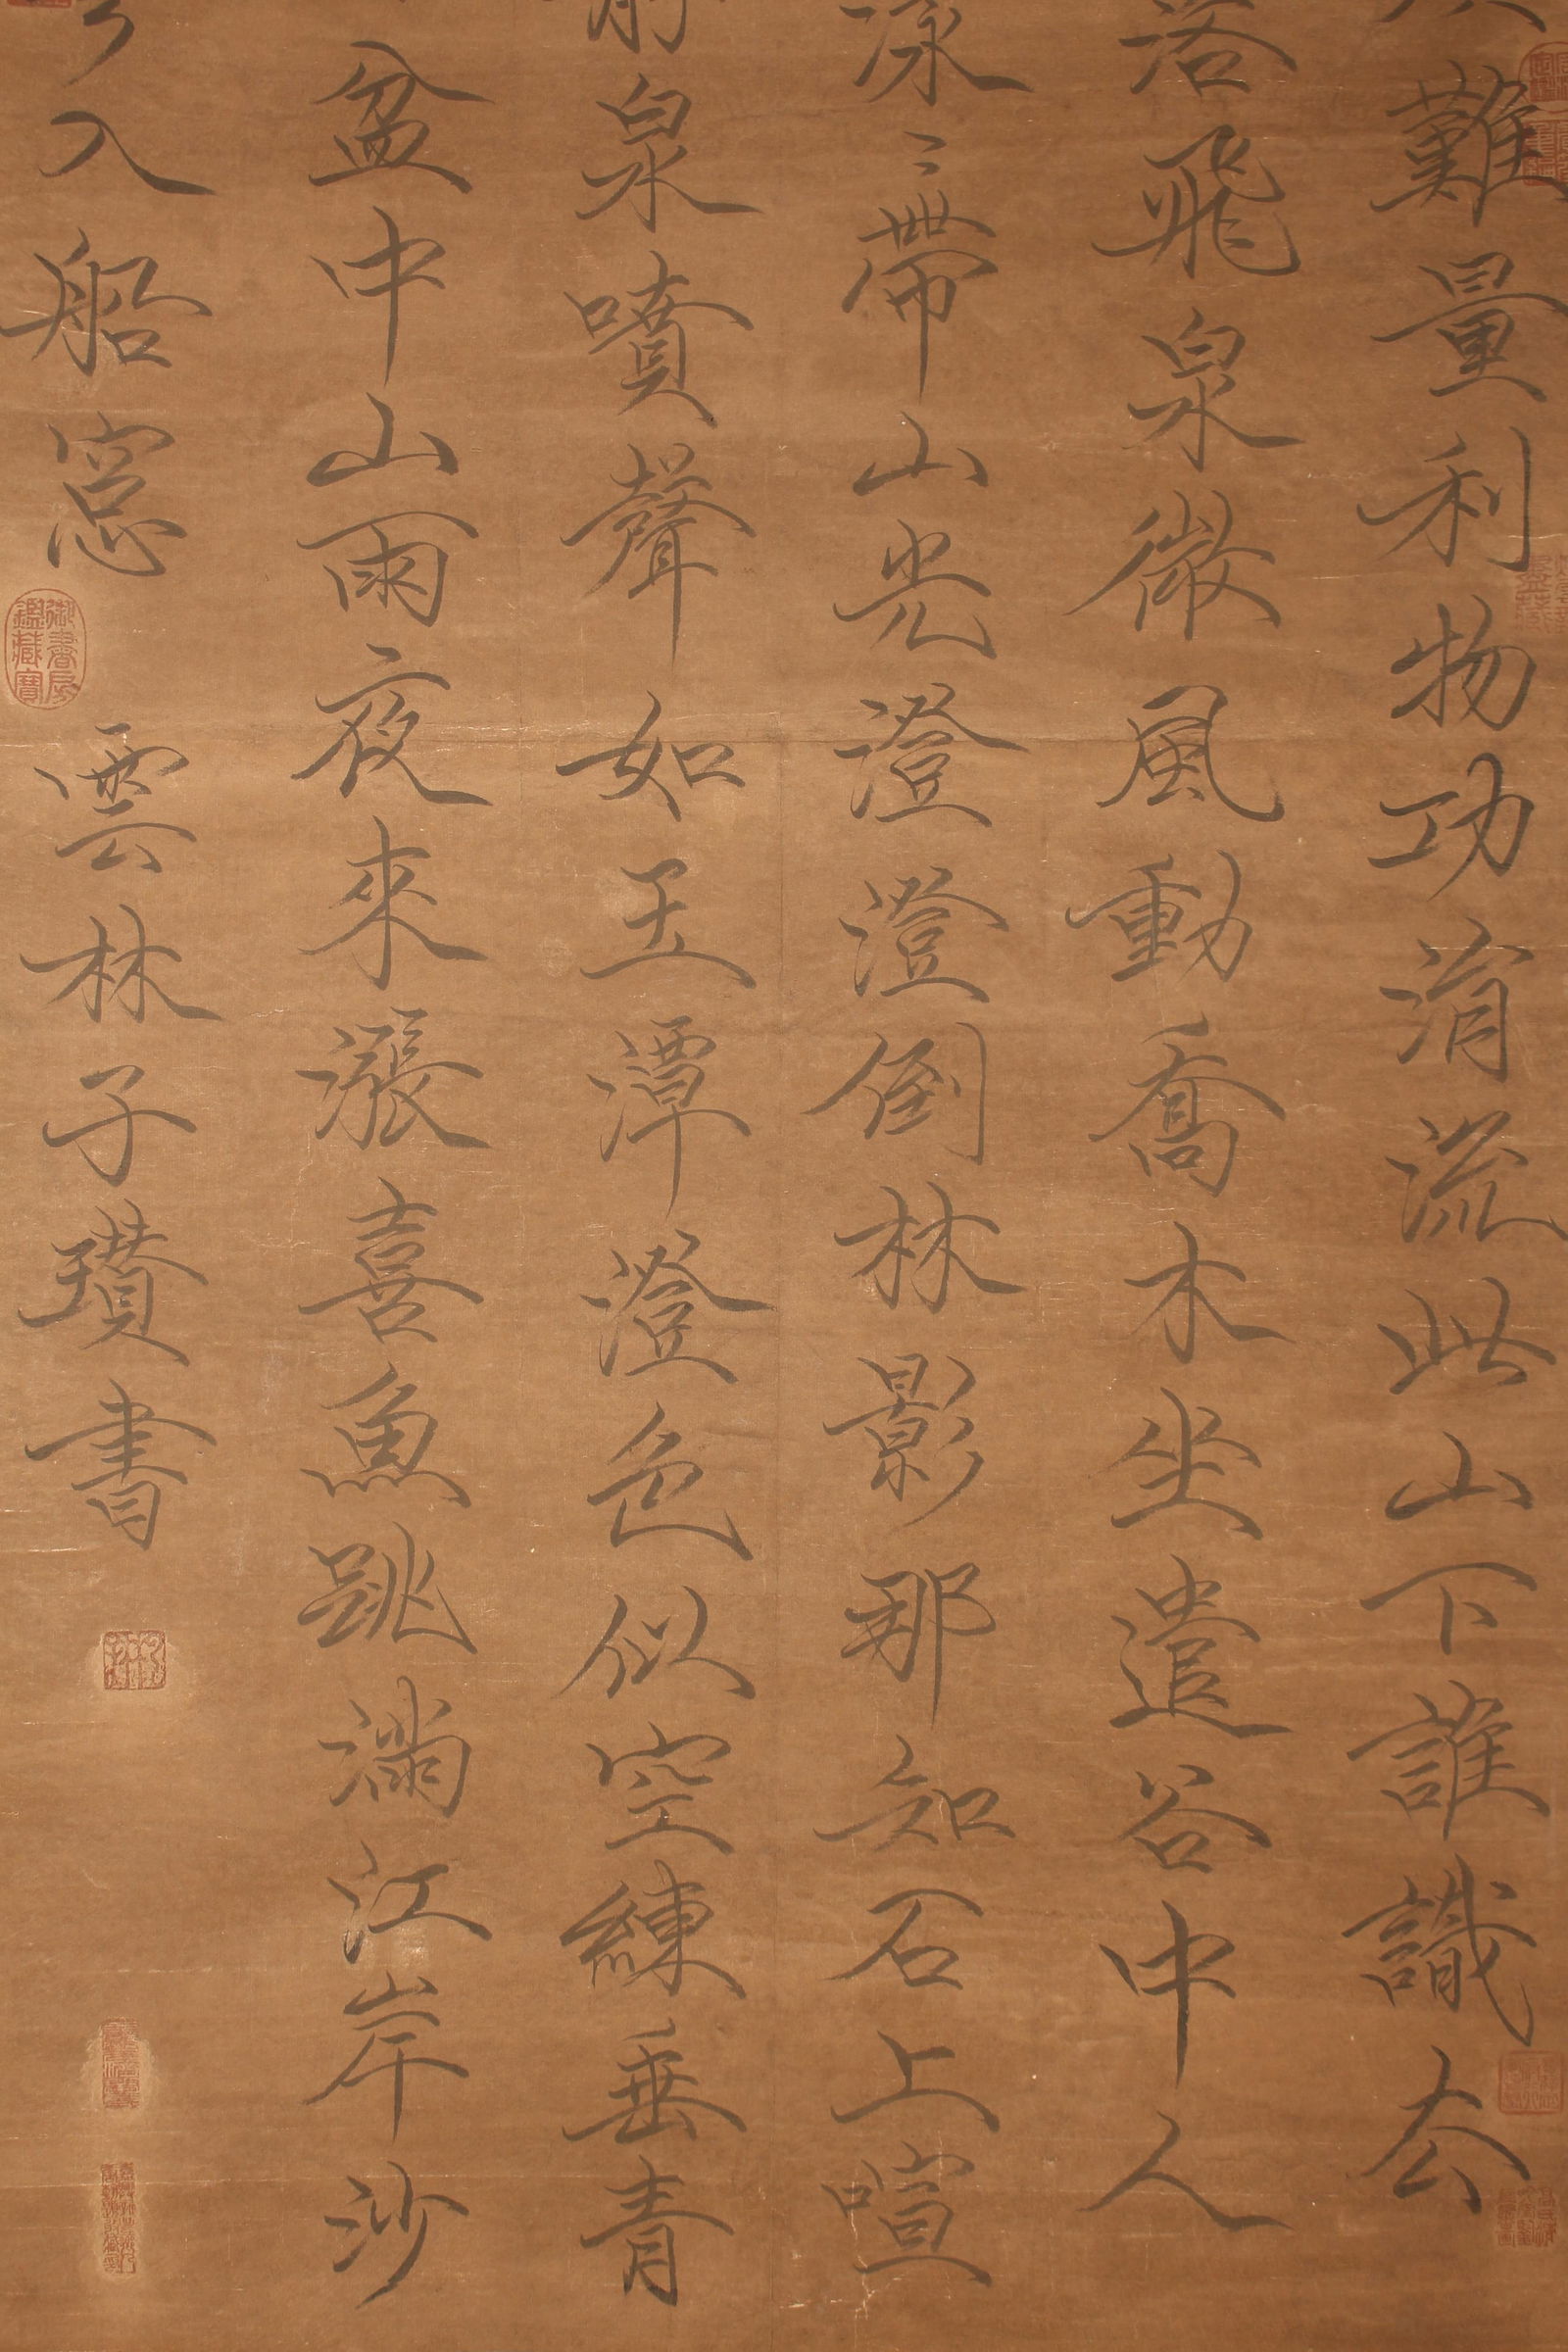 難量利物功消流此山下誰識公
落飛泉微風動喬木坐遣谷中人
泳〻帶山光澄澄倒林影那知石上喧
前泉噴聲如玉潭澄色似空練垂青
盆中山雨夜來漲喜魚跳滿江岸沙
入船窓
雲林子瓚書
御書房鑑藏寶